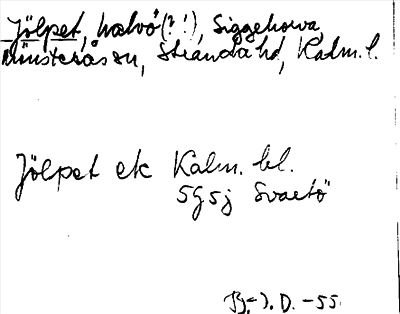 Jölpet, halvö(?!), Siggehorva,
Mönsterås sn, Stranda hd, Kalm. l.
Jölpet ek Kalm. bl.
5G5j Svartö
Bj-J. D. -55.